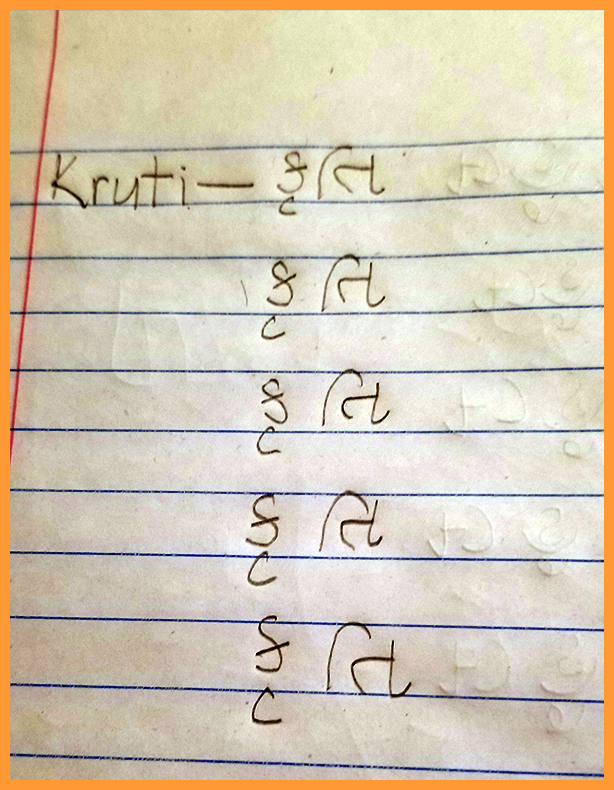 Kruti — કૃતિ
કૃતિ
કૃતિ
કૃતિ
કૃતિ